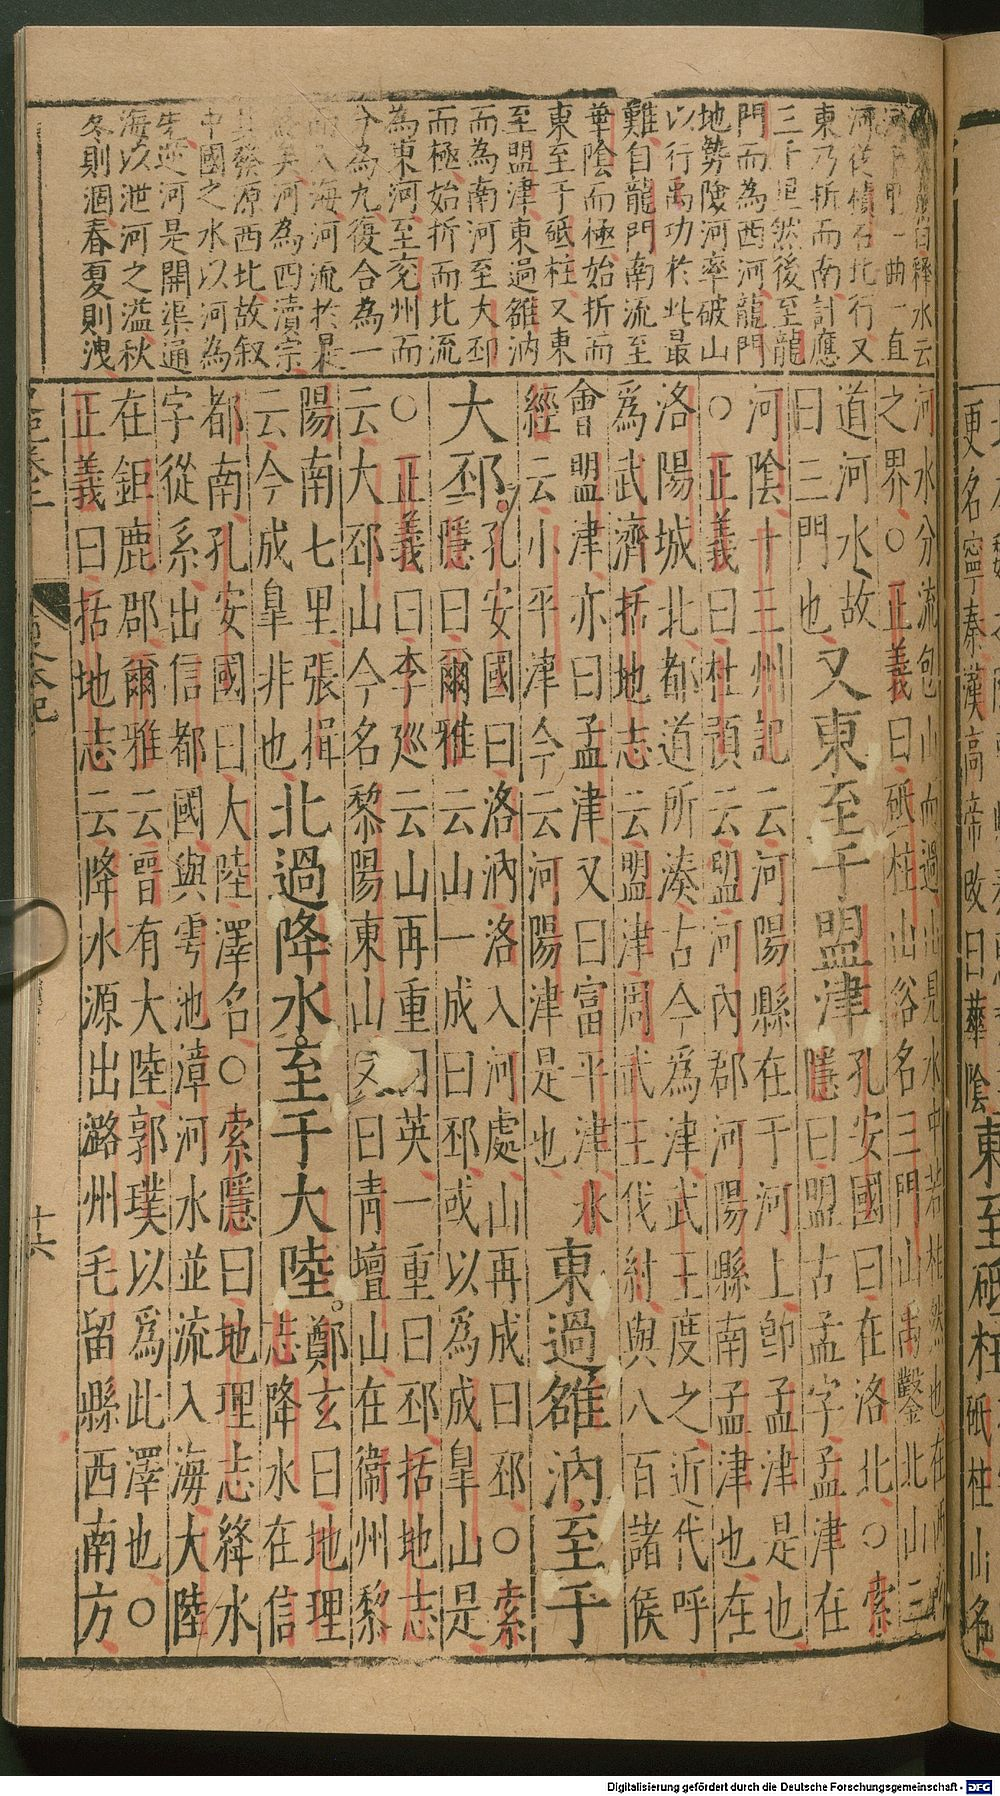 釋水云
河千里一曲一直
河從積石北行又
東乃折而南計應
三千里然後至龍
門而為西河龍門
地勢險河率破山
以行禹功於此最
難自龍門南流至
華陰而極始折而
東至于砥柱又東
至盟津東過雒汭
而為南河至大邳
而極始折而北流
為東河至兗州而
分為九復合為一
而入海河流於是
河為四瀆宗
其發源西北故叙
中國之水以河為
先逆河是開渠通
海以泄河之溢秋
冬則涸春夏則洩
河水分流包山而過山見水中若柱然也在西虢
之界○正義曰砥柱山俗名三門山禹鑿北山三
道河水故
曰三門也
又東至于盟津
孔安國曰在洛北○索
隱曰盟古孟字孟津在
河陰十三州記云河陽縣在于河上即孟津是也
○正義曰杜預云盟河內郡河陽縣南孟津也在
洛陽城北都道所湊古今為津武王度之近代呼
為武濟括地志云盟津周武王伐紂與八百諸侯
會盟津亦曰孟津又曰富平津水
經云小平津今云河陽津是也
東過雒汭至于
大邳
孔安國曰洛汭洛入河處山再成曰邳○索
隱曰爾雅云山一成曰邳或以為成臯山是
○正義曰李巡云山再重曰英一重曰邳括地志
云大邳山今名黎陽東山又曰青壇山在衞州黎
陽南七里張揖
云今成臯非也
北過降水至于大陸
鄭玄曰地理
志降水在信
都南孔安國曰大陸澤名○索隱曰地理志絳水
字從系出信都國與雩池漳河水並流入海大陸
在鉅鹿郡爾雅云晉有大陸郭璞以為此澤也○
正義曰括地志云降水源出潞州屯留縣西南方
夏本紀
十六
更名寧秦漢高帝改曰華陰
東至砥柱
砥柱山名
Digitalisierung gefördert durch die Deutsche Forschungsgemeinschaft - DFG